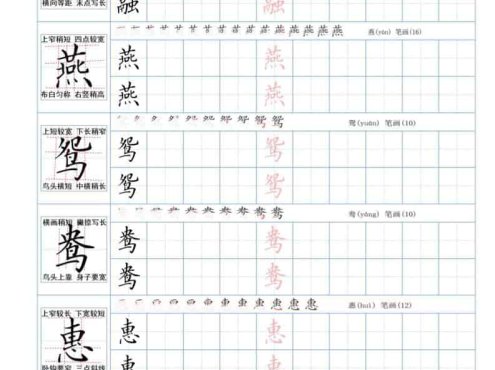 横向等距 末点写长
融
融
融
燕(yàn) 笔画(16)
上窄稍短 四点较宽
燕
燕
燕
燕
燕
布白匀称 右竖稍高
鸳(yuān) 笔画(10)
上短较宽 下长稍窄
鸳
鸳
鸳
鸳
鸳
鸟头横短 中横稍长
鸯(yāng) 笔画(10)
横画稍短 撇捺写长
鸯
鸯
鸯
鸯
鸯
鸟头上靠 身子要宽
惠(huì) 笔画(12)
上窄较长 下宽较短
惠
惠
惠
惠
惠
卧钩要宽 三点斜线